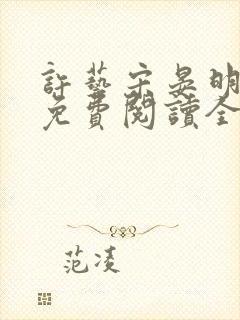 許藝宋晏明
免費閱讀全
范凌